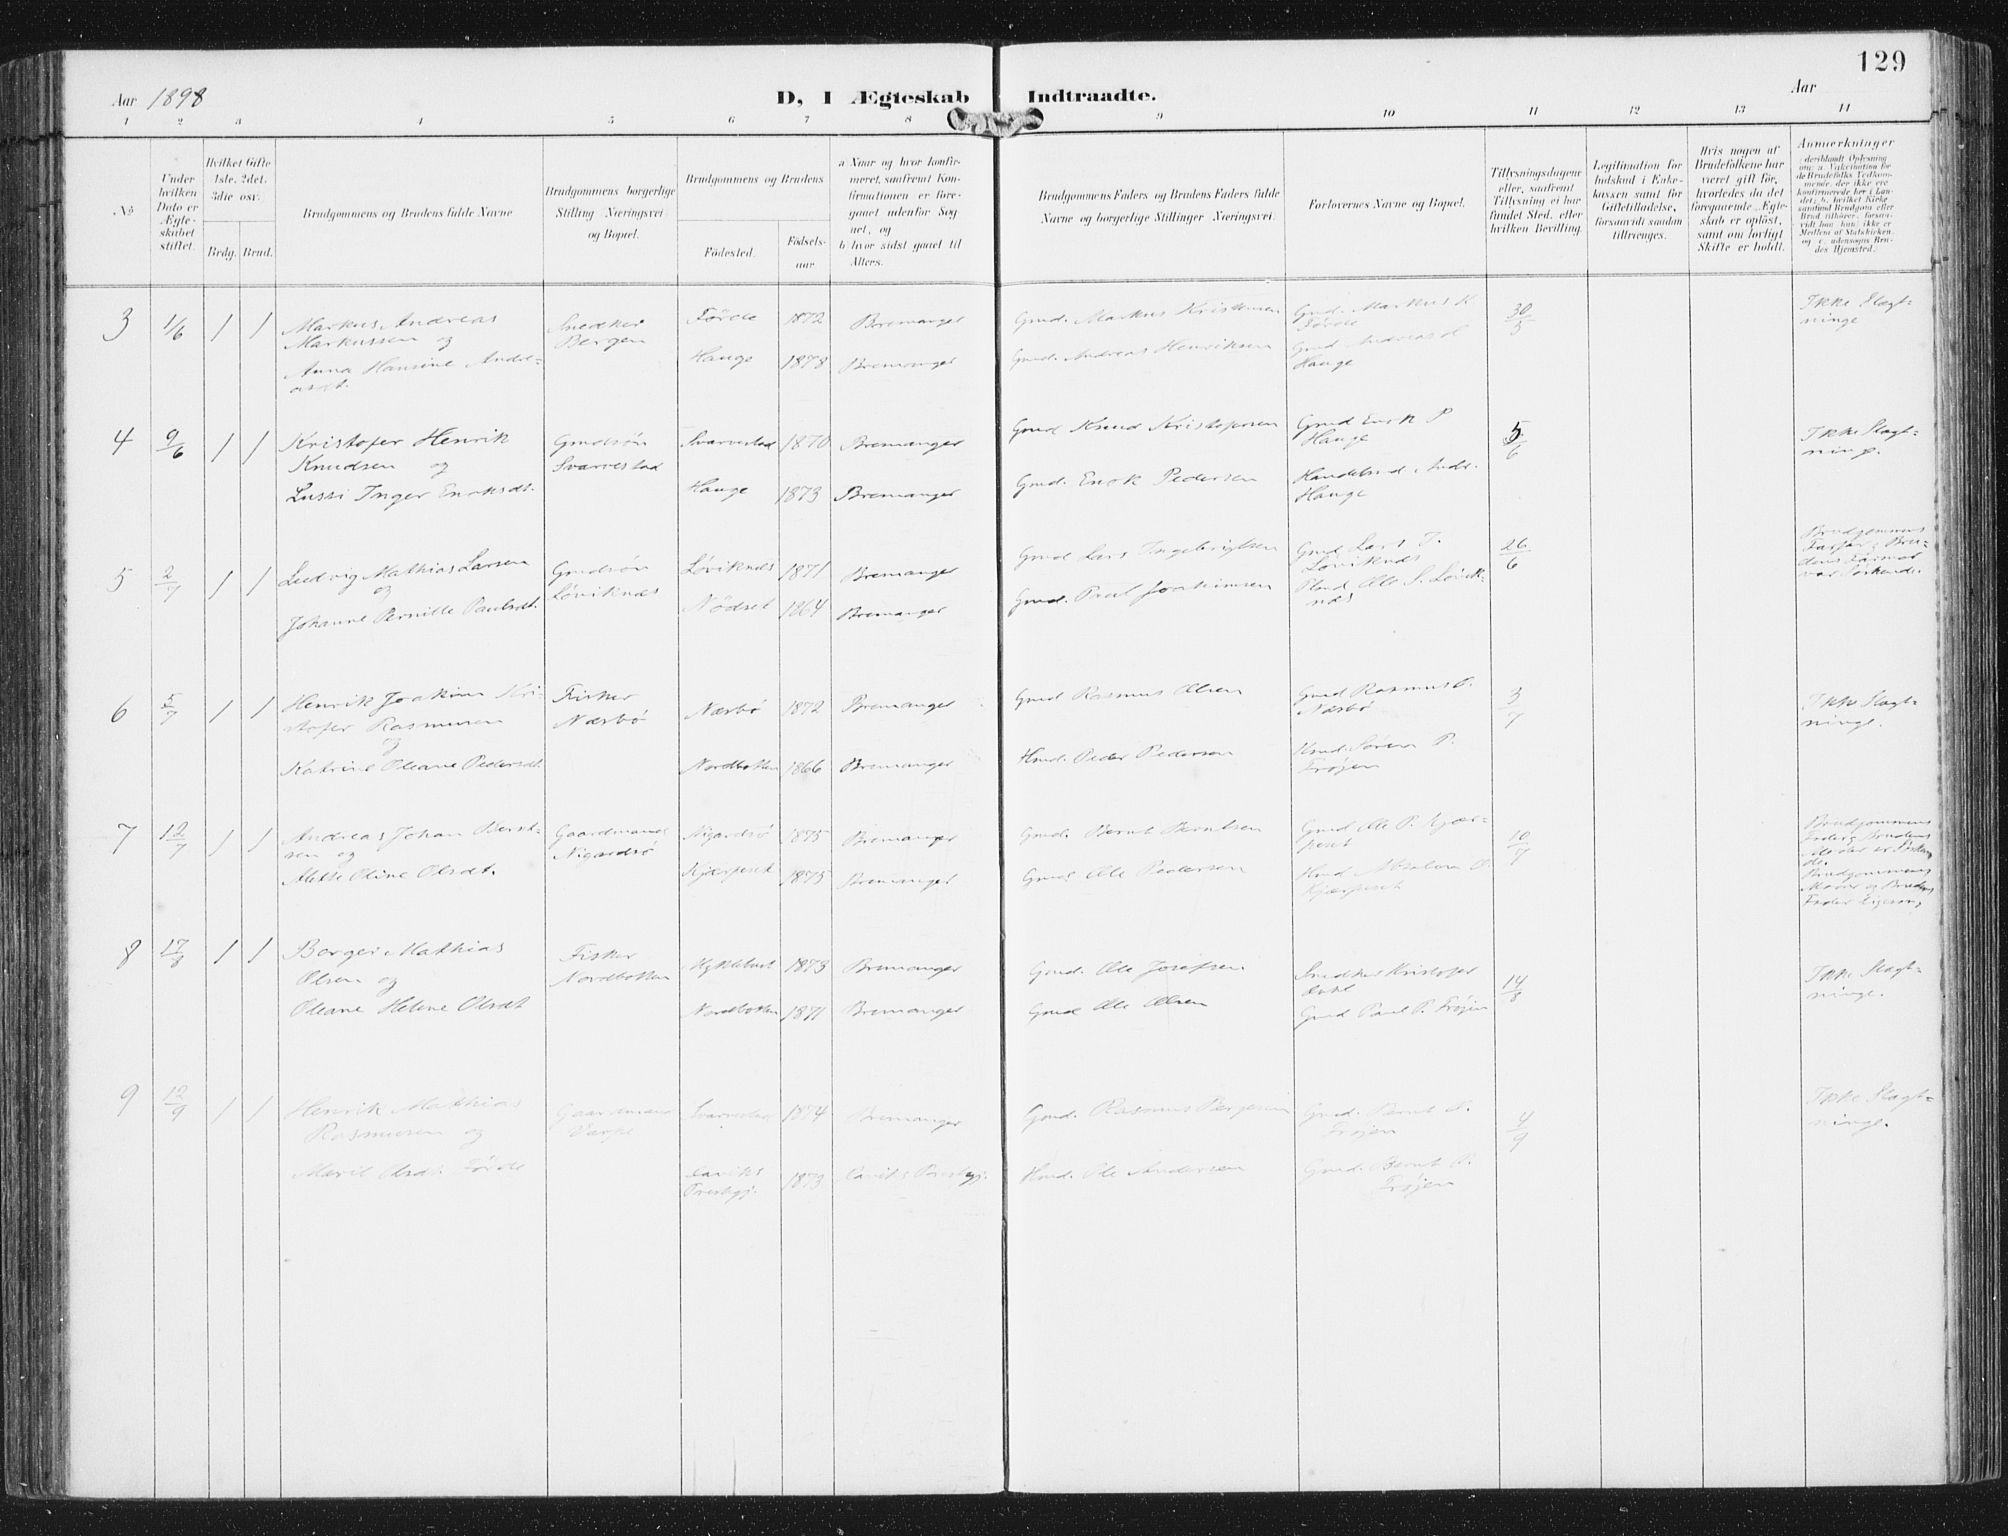 129
Aar 1898
D, I Ægteskab Indtraadte.
Aar
1 2 3 4 5 6 7 8 9 10 11 12 13 14
№
Under hvilken Dato er Ægteskabet stiftet.
Hvilket Gifte 1ste, 2det, 3die osv.
Brdg. Brud.
Brudgommens og Brudens fulde Navne
Brudgommens borgerlige Stilling Næringsvei og Bopæl.
Brudgommens og Brudens
Födested. Födselsaar
a Naar og hvor konfirmeret, saafremt Konfirmationen er foregaaet udenfor Sognet, og
b hvor sidst gaaet til Alters.
Brudgommens Faders og Brudens Faders fulde Navne og borgerlige Stillinger Næringsvei.
Forlovernes Navne og Bopæl.
Tillysningsdagene eller, saafremt Tillysning ei har fundet Sted, efter hvilken Bevilling.
Legitimation for Indskud i Enkekassen samt for Giftetilladelse, forsaavidt saadan tiltrænges.
Hvis nogen af Brudefolkene har været gift før, hvorledes da det foregaaende Ægteskab er opløst, samt om lovligt Skifte er holdt.
Anmærkninger
3 1/6 1 1 Markus Andreas Markussen og Snedker Bergen Førde 1872 Bremanger Gmd. Markus Kristensen Gmd. Markus K. Førde 30/5 Ikke Slægtninge
Anna Hansine Andreasdt. Hauge 1878 Bremanger Gmd. Andreas Henriksen Gmd Andreas H Hauge
4 9/6 1 1 Kristofer Henrik Knudsen og Gmdsøn Svarvestad Svarvestad 1870 Bremanger Gmd Knud Kristofersen Gmd Enok P Hauge 5/6 Ikke Slægtninge.
Lussi Inger Enoksdt. Hauge 1873 Bremanger Gmd. Enok Pedersen Hauge
5 2/7 1 1 Ludvig Mathias Larsen og Gmdsøn Løviknæs Løviknæs 1871 Bremanger Gmd Lars Ingebrigtsen Gmd Lars I. Løviknæs 26/6 Brudgommens Farfar og Brudens Farmor var Søskende.
Johanne Pernille Paulsdt. Nødset 1864 Bremanger Gmd. Paul Joakimsen Ole S. Løviknæs
6 5/7 1 1 Henrik Joakim Kristofer Rasmusen og Fisker Næsbø Næsbø 1872 Bremanger Gmd Rasmus Olsen Gmd Rasmus O. Næsbø 3/7 Ikke Slægtninge.
Katrine Oleane Pedersdt. Nordbotten 1866 Bremanger Hmd. Peder Pedersen Kmd. Søren P. Frøjen
7 12/7 1 1 Andreas Johan Berntsen og Gaardmand Nigardsø Nigardsø 1875 Bremanger Gmd. Bernt Berntsen Gmd Ole P. Kjærpeset 10/7 Brudgommens Fader og Brudens Moder er Søskende. Brudgommens Moder og Brudens Fader ligesaa.
Alette Oline Olsdt. Kjærpeset 1875 Bremanger Gmd Ole Pedersen Hmd Absalon O. Kjærpeset
8 17/8 1 1 Berger Mathias Olsen og Fisker Nordbotten Myklebust 1873 Bremanger Gmd. Ole Josefsen Snedker Kristofer 14/8 Ikke Slægtninge.
Oleane Helene Olsdt Nordbotten 1871 Bremanger Gmd Ole Olsen Gmd Paul P. Frøjen
9 12/9 1 1 Henrik Mathias Rasmusen og Gaardmand Varpe Svarvestad 1874 Bremanger Gmd. Rasmus Bergesen Gmd. Bernt P. Frøjen 4/9 Ikke Slægtninge.
Marit Olsdt. Førde Laviks Prestegj. 1873 Laviks Prestegj. Hmd. Ole Andersen Gmd. Bernt P. Frøjen